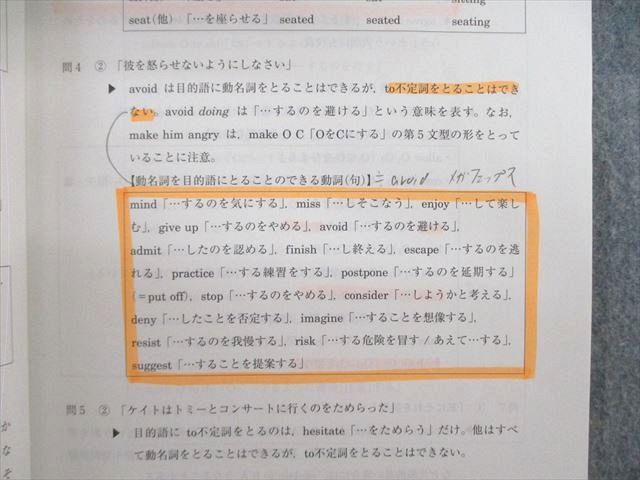 sitting
seat(他) 「…を座らせる」 seated seated seating
問4 ② 「彼を怒らせないようにしなさい」
▶ avoid は目的語に動名詞をとることはできるが, to不定詞をとることはでき
ない。avoid doing は「…するのを避ける」という意味を表す。なお,
make him angry は, make O C「OをCにする」の第5文型の形をとって
いることに注意。
【動名詞を目的語にとることのできる動詞(句)】 avoid メガフェップス
mind「…するのを気にする」, miss「…しそこなう」, enjoy「…して楽し
む」, give up「…するのをやめる」, avoid「…するのを避ける」,
admit「…したのを認める」, finish「…し終える」, escape「…するのを逃
れる」, practice「…する練習をする」, postpone「…するのを延期する」
(=put off), stop「…するのをやめる」, consider「…しようかと考える」,
deny「…したことを否定する」, imagine「…することを想像する」,
resist「…するのを我慢する」, risk「…する危険を冒す / あえて…する」,
suggest「…することを提案する」
問5 ② 「ケイトはトミーとコンサートに行くのをためらった」
▶ 目的語に to不定詞をとるのは, hesitate「…をためらう」だけ。他はすべ
て動名詞をとることはできるが, to不定詞をとることはできない。
か
な
そ